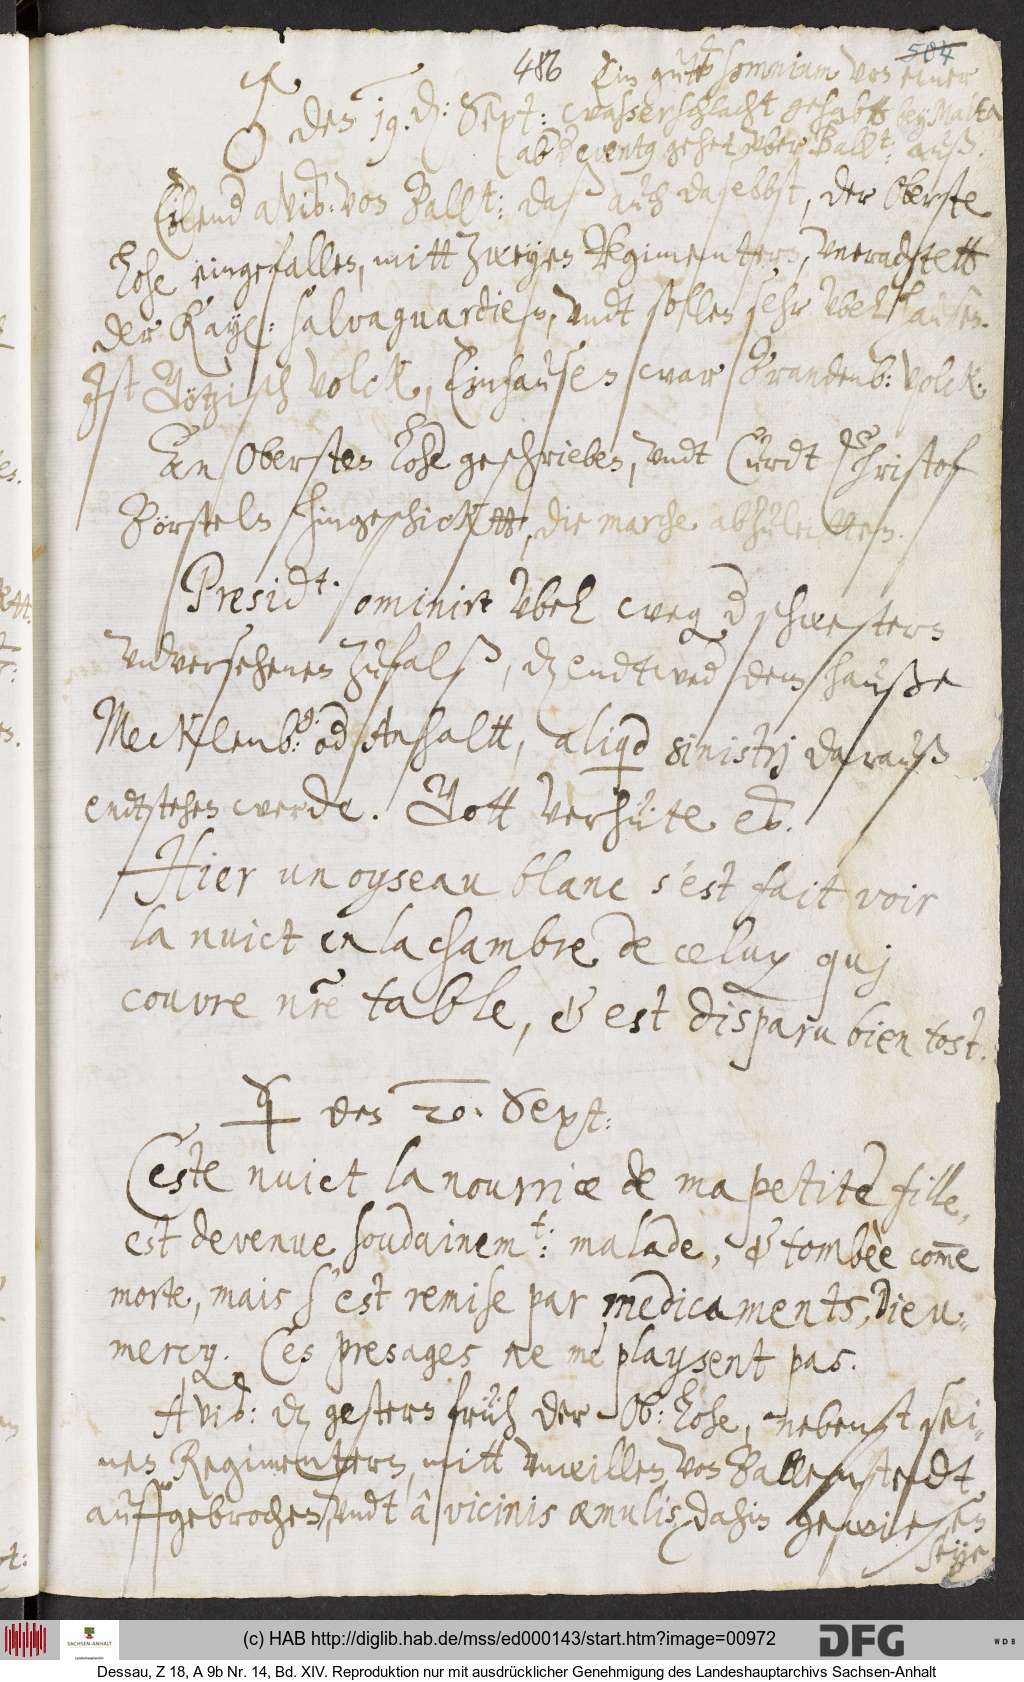 486 504
Ein gutt somnium von einer
♂ den 19. d: Sept: wasserschlacht gehabtt bey Malta
gehet vber Ballst: auß.
Eilend avis: von Ballst: daß auch daselbst, der Oberste
Lohe eingefallen, mitt zweyen Regimentern, vnerachtett
der Kayß: salvaguardien, vndt sollen sehr vbel hausen.
Jst Götzisch volck, Einhausen war Brandenb: volck.
An Obersten Lohe geschrieben, vndt Curdt Christof
Börsteln hingeschicktt, die marche abzuleitten.
Presid<sup>t.</sup> ominirt vbel weg d schwestern
vnversehenen zufalß, dz endtwed dem hauße
Mecklenb<sup>g</sup>: od Anhaltt, aliqd sinistrj darauß
endtstehen werde. Gott verhüte es.
Hier un oyseau blanc s'est fait voir
la nuict en la chambre de celuy quj
couvre nr̃e table, & est disparu bien tost.
☿ den 20. Sept:
Ceste nuict la nourrice de ma petite fille,
est devenue soudainem<sup>t</sup>: malade, & tombèe com̄e
morte, mais s'est remise par medicaments, Dieu-
mercy. Ces presages ne me playsent pas.
Avis: dz gestern früh der Ob: Lohe, nebenst sei-
nen Regimentern, mitt vnwillen, von Ballenstedt
auffgebrochen, vndt â vicinis æmulis, dahin gewiesen
seye
(c) HAB http://diglib.hab.de/mss/ed000143/start.htm?image=00972
SACHSEN-ANHALT
Landeshauptarchiv
DFG
WDB
Dessau, Z 18, A 9b Nr. 14, Bd. XIV. Reproduktion nur mit ausdrücklicher Genehmigung des Landeshauptarchivs Sachsen-Anhalt